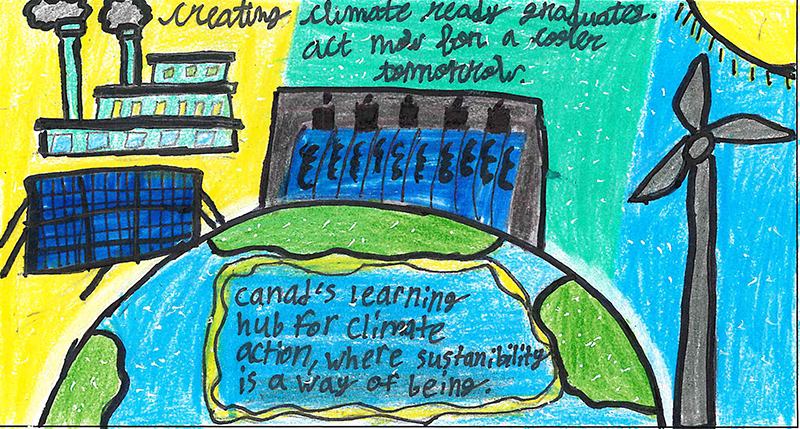 creating climate ready graduates.
act now for a cooler
tomorrow.
canad's Learning
hub for climate
action, where sustanibility
is a way of being.